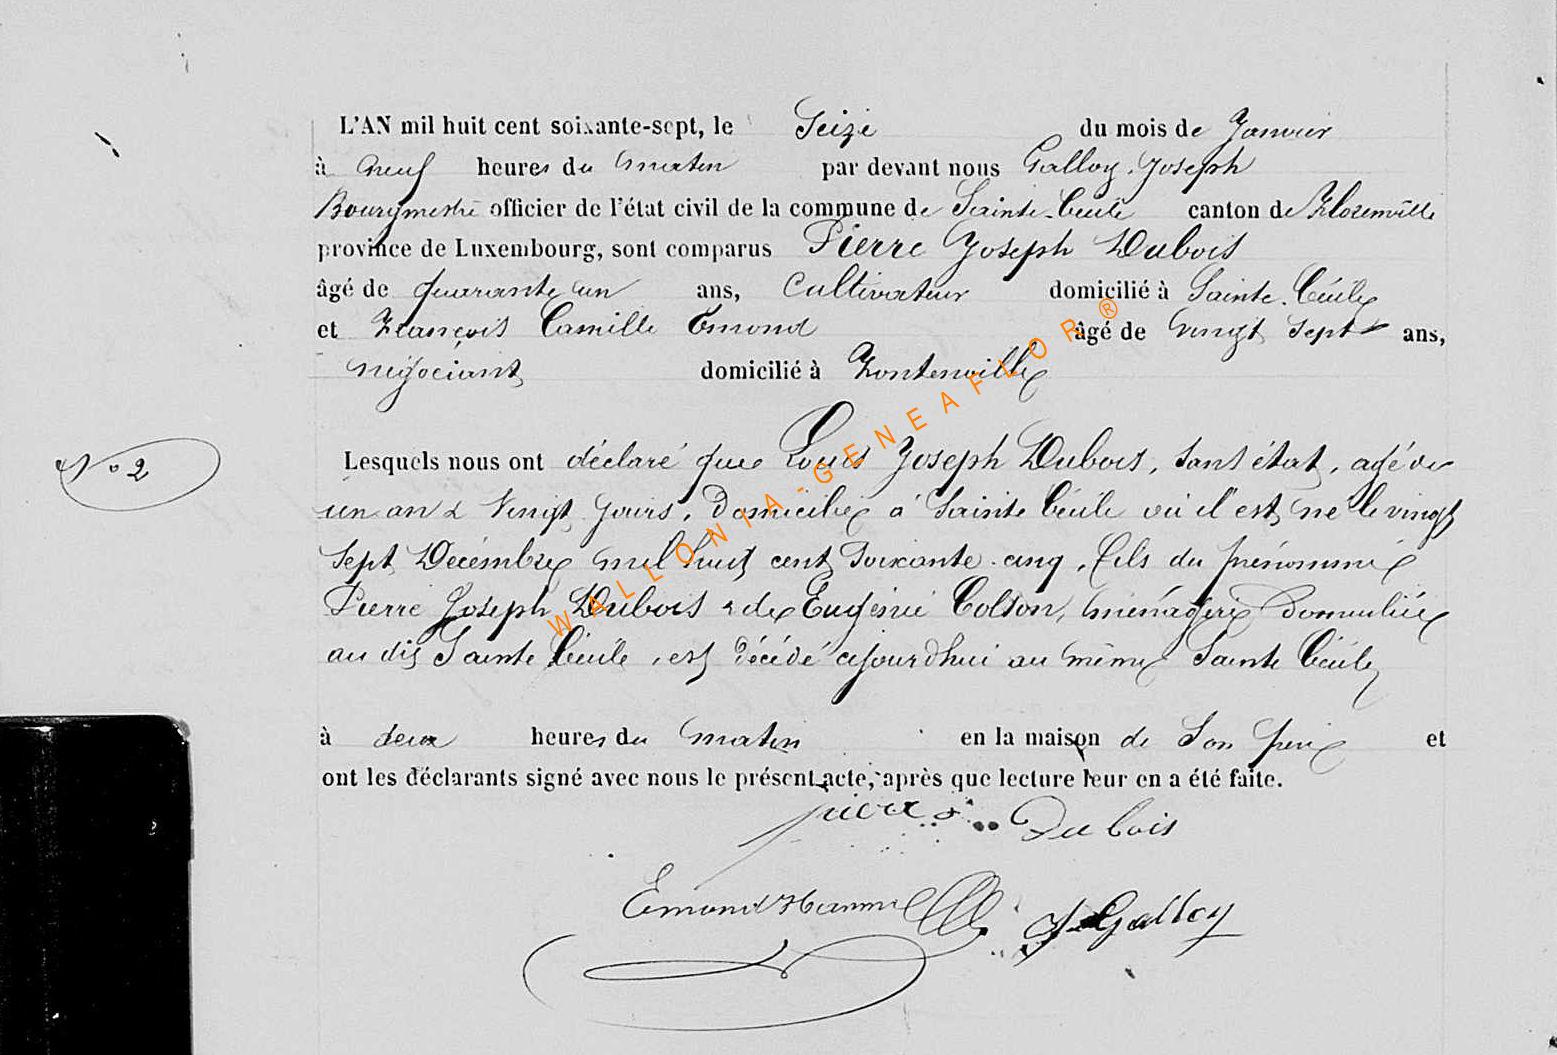 L'AN mil huit cent soixante-sept, le Seize du mois de Janvier
à neuf heures du matin par devant nous Galloy Joseph
Bourgmestre officier de l'état civil de la commune de Sainte-Cécile canton de Florenville
province de Luxembourg, sont comparus Pierre Joseph Dubois
âgé de quarante un ans, Cultivateur domicilié à Sainte Cécile
et François Camille Emond âgé de vingt sept ans,
négociant domicilié à Fontenoille
N° 2
Lesquels nous ont déclaré que Louis Joseph Dubois, sans état, agé de
un an & vingt jours, Domicilié à Sainte Cécile où il est né le vingt
Sept Décembre mil huit cent Soixante-cinq, fils du prénommé
Pierre Joseph Dubois & de Eugénie Colson, ménagère Domiciliée
au dit Sainte Cécile, est décédé cejourdhui au même Sainte Cécile
à deux heures du matin en la maison de Son père et
ont les déclarants signé avec nous le présent acte, après que lecture leur en a été faite.
Dubois
Emond J Galloy
WALLONIA-GENEAFLOR®